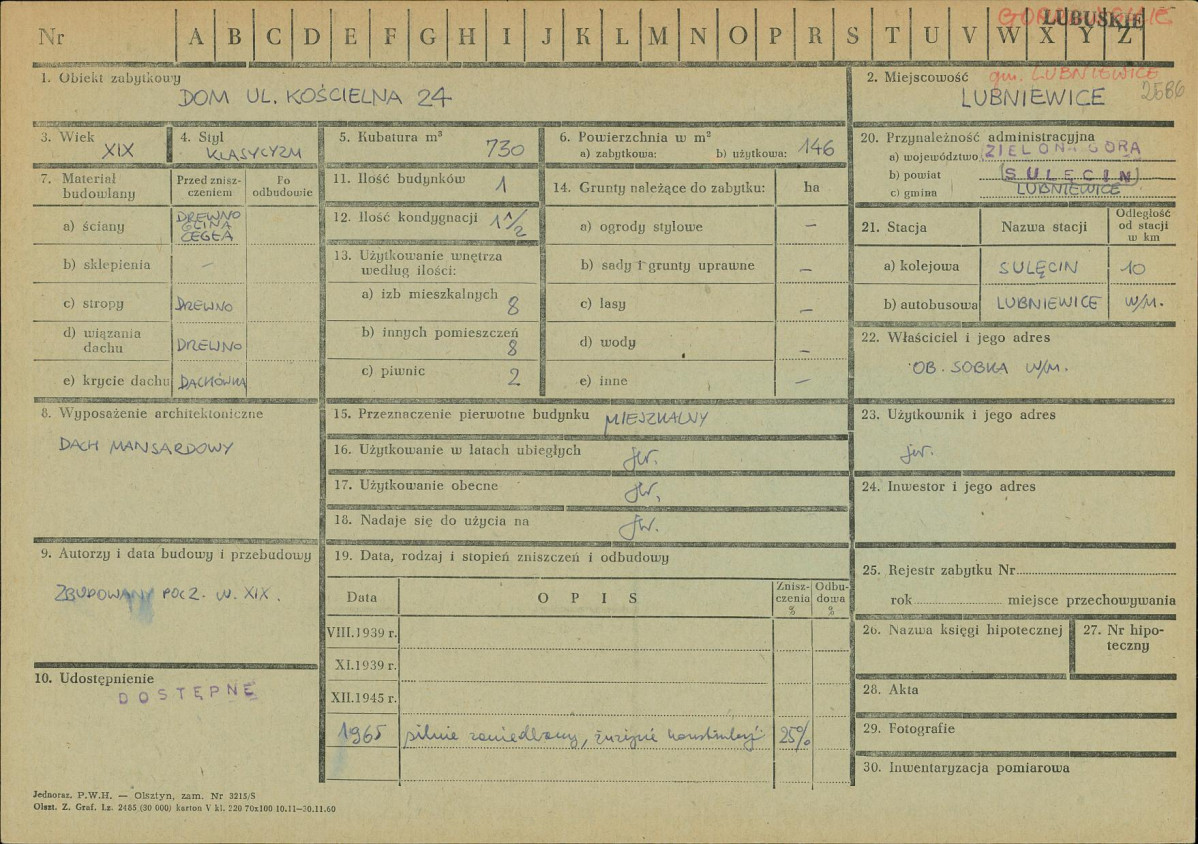 Nr A B C D E F G H I J K L M N O P R S T U V W X Y Z
LUBUSKIE
1. Obiekt zabytkowy
DOM UL. KOŚCIELNA 24
2. Miejscowość gm. LUBNIEWICE
LUBNIEWICE 2586
3. Wiek
XIX
4. Styl
KLASYCYZM
5. Kubatura m³
730
6. Powierzchnia w m²
a) zabytkowa: b) użytkowa: 146
7. Materiał budowlany
Przed zniszczeniem
Po odbudowie
a) ściany DREWNO
GLINA
CEGŁA
b) sklepienia –
c) stropy DREWNO
d) wiązania dachu DREWNO
e) krycie dachu DACHÓWKA
8. Wyposażenie architektoniczne
DACH MANSARDOWY
9. Autorzy i data budowy i przebudowy
ZBUDOWANY POCZ. W. XIX.
10. Udostępnienie
DOSTĘPNE
11. Ilość budynków 1
12. Ilość kondygnacji 1 1/2
13. Użytkowanie wnętrza
według ilości:
a) izb mieszkalnych 8
b) innych pomieszczeń 8
c) piwnic 2
14. Grunty należące do zabytku: ha
a) ogrody stylowe –
b) sady i grunty uprawne –
c) lasy –
d) wody –
e) inne –
15. Przeznaczenie pierwotne budynku MIESZKALNY
16. Użytkowanie w latach ubiegłych jw.
17. Użytkowanie obecne jw.
18. Nadaje się do użycia na jw.
19. Data, rodzaj i stopień zniszczeń i odbudowy
Data OPIS Zniszczenia % Odbudowa %
VIII.1939 r.
XI.1939 r.
XII.1945 r.
1965 silnie zaniedbany, zużycie konstrukcji 25%
20. Przynależność administracyjna
a) województwo ZIELONA GÓRA
b) powiat SULĘCIN
c) gmina LUBNIEWICE
21. Stacja Nazwa stacji Odległość od stacji w km
a) kolejowa SULĘCIN 10
b) autobusowa LUBNIEWICE W/M.
22. Właściciel i jego adres
OB. SOBKA W/M.
23. Użytkownik i jego adres
jw.
24. Inwestor i jego adres
25. Rejestr zabytku Nr
rok miejsce przechowywania
26. Nazwa księgi hipotecznej
27. Nr hipoteczny
28. Akta
29. Fotografie
30. Inwentaryzacja pomiarowa
Jednoraz. P.W.H. — Olsztyn, zam. Nr 3215/S
Olszt. Z. Graf. Lz. 2485 (30 000) karton V kl. 220 70x100 10.11—30.11.60